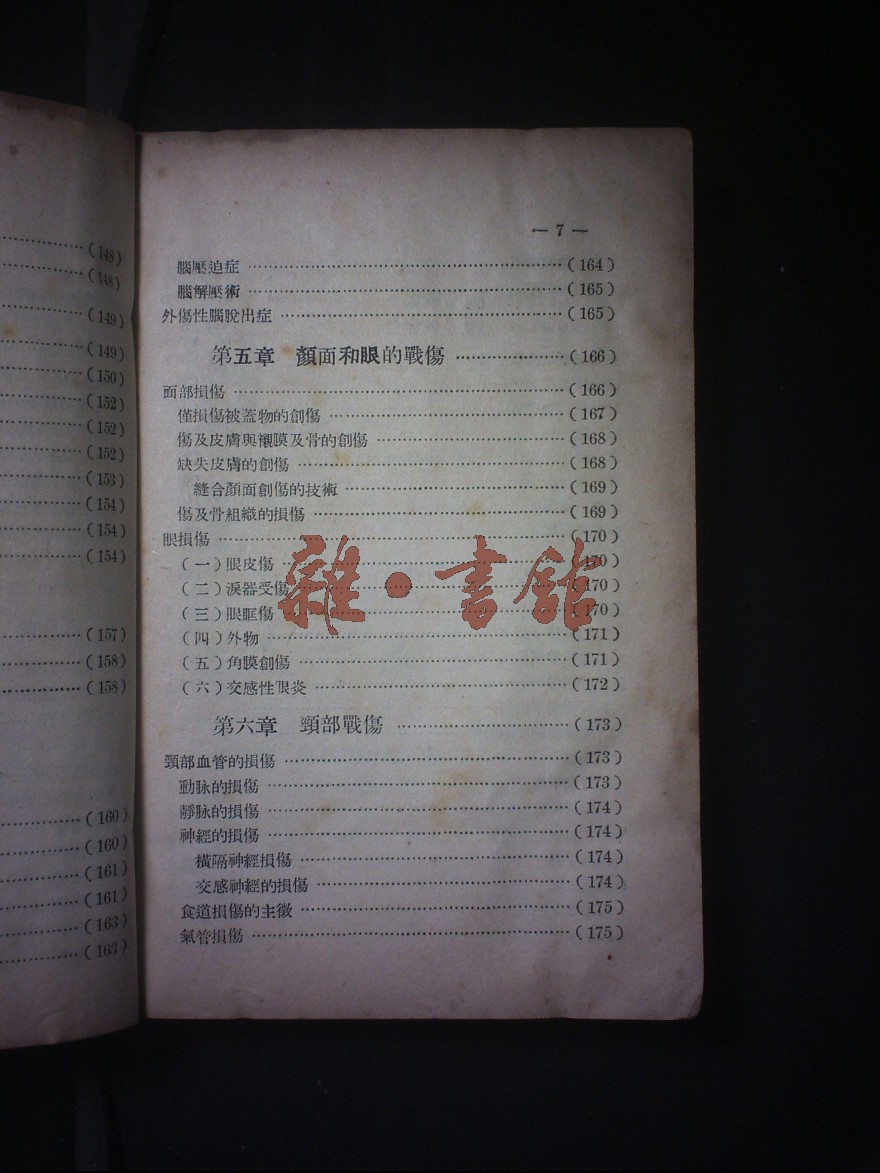 (148)
(148)
(149)
(149)
(150)
(152)
(152)
(152)
(153)
(154)
(154)
(154)
(157)
(158)
(158)
(160)
(160)
(161)
(161)
(163)
(163)
— 7 —
腦壓迫症 ……………… (164)
腦解壓術 ……………… (165)
外傷性腦脫出症 ……………… (165)
第五章 顏面和眼的戰傷 ……………… (166)
面部損傷 ……………… (166)
僅損傷被蓋物的創傷 ……………… (167)
傷及皮膚與襯膜及骨的創傷 ……………… (168)
缺失皮膚的創傷 ……………… (168)
縫合顏面創傷的技術 ……………… (169)
傷及骨組織的損傷 ……………… (169)
眼損傷 ……………… (170)
(一)眼皮傷 ……………… (170)
(二)淚器受傷 ……………… (170)
(三)眼眶傷 ……………… (170)
(四)外物 ……………… (171)
(五)角膜創傷 ……………… (171)
(六)交感性眼炎 ……………… (172)
第六章 頸部戰傷 ……………… (173)
頸部血管的損傷 ……………… (173)
動脉的損傷 ……………… (173)
靜脉的損傷 ……………… (174)
神經的損傷 ……………… (174)
橫隔神經損傷 ……………… (174)
交感神經的損傷 ……………… (174)
食道損傷的主徵 ……………… (175)
氣管損傷 ……………… (175)
雜·書館